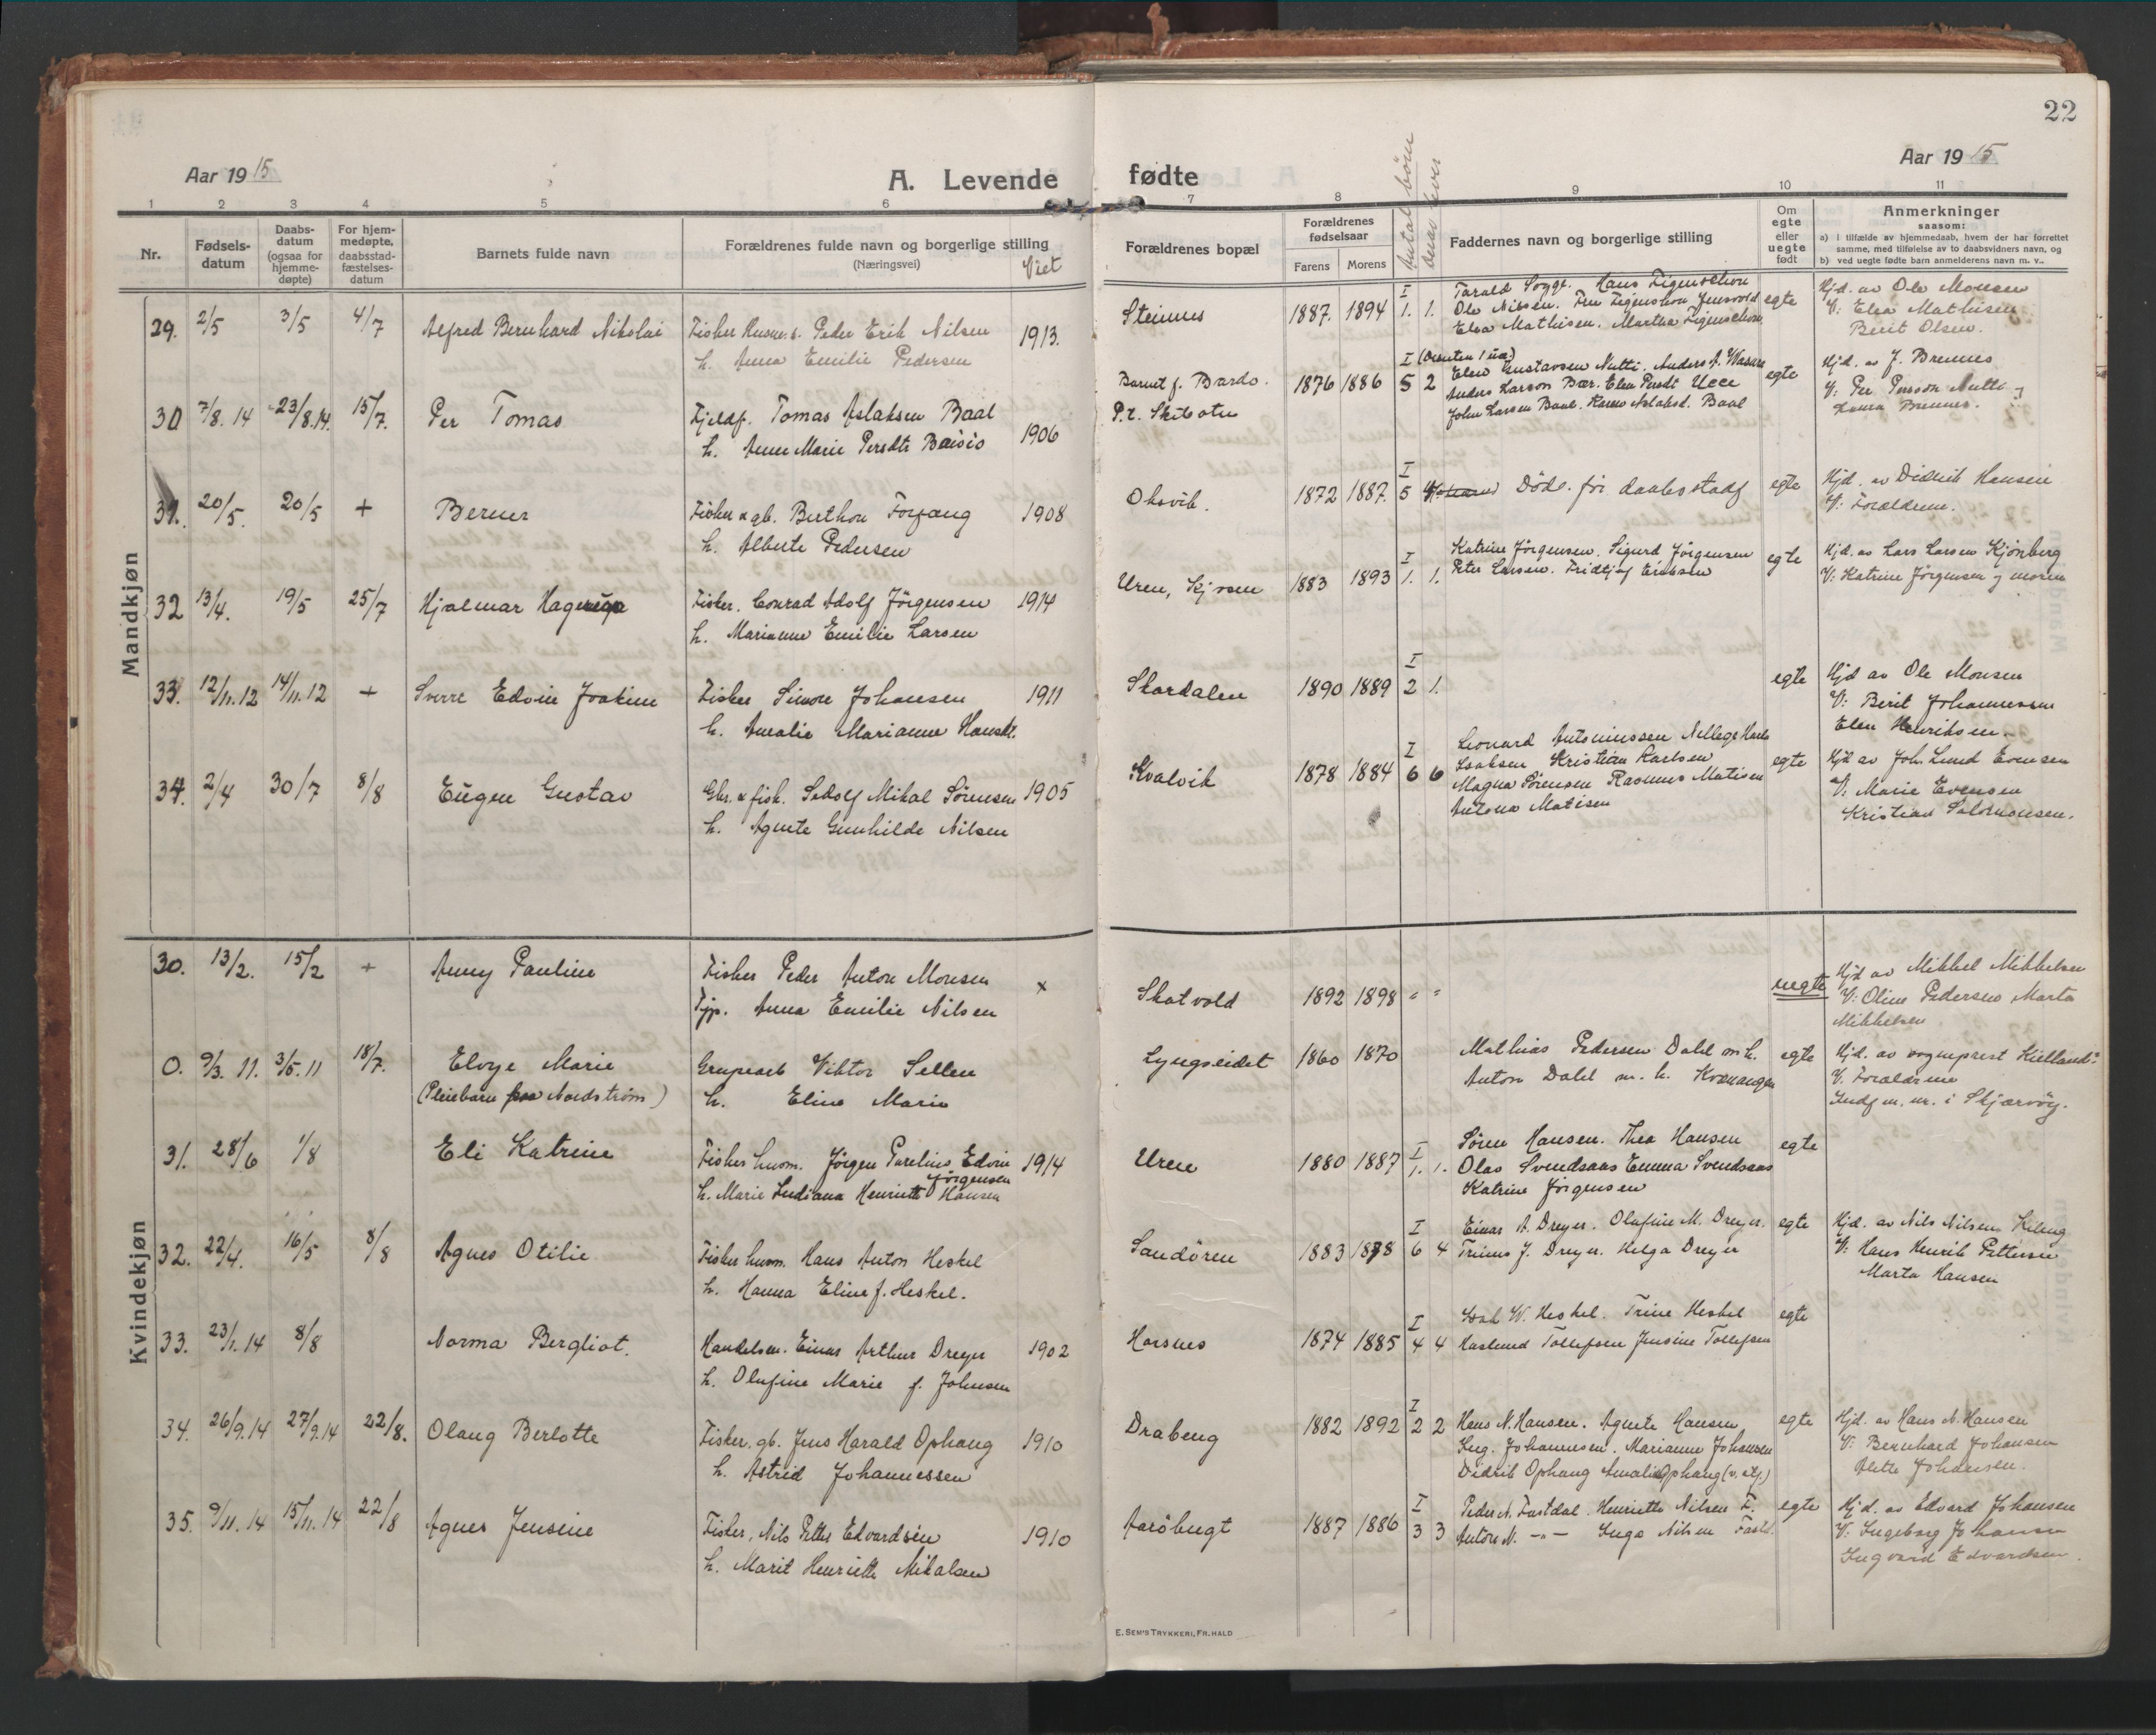 22
Aar 1915
A. Levende fødte
Aar 1915
1 2 3 4 5 6 7 8 9 10 11
Nr.
Fødsels-
datum
Daabs-
datum
(ogsaa for
hjemme-
døpte)
For hjem-
medøpte,
daabsstad-
fæstelses-
datum
Barnets fulde navn
Forældrenes fulde navn og borgerlige stilling
(Næringsvei)
Viet
Forældrenes bopæl
Forældrenes
fødselsaar
Farens Morens
Antal børn
derav lever
Faddernes navn og borgerlige stilling
Om
egte
eller
uegte
født
Anmerkninger
saasom:
a) i tilfælde av hjemmedaab, hvem der har forrettet
samme, med tilføielse av to daabsvidners navn, og
b) ved uegte fødte barn anmelderens navn m. v..
Mandkjøn
29. 2/5 3/5 4/7 Alfred Bernhard Nikolai
Fisker Peder Erik Nilsen 1913.
h. Anna Emilie Pedersen
Steinnes 1887. 1894 I 1. 1.
Ole Nilsen.
Elea Mathisen. Martha
egte
Hjd. av Ole Monsen
V: Elea Mathisen
Berit Olsen.
30 7/8. 14 23/8.14. 15/7. Per Tomas
Fjeldf. Tomas Aslaksen Baal
h. Anne Marie Persdtr 1906
Bardo.
P.t. Skibotn
1876 1886 I 5 2
Elen Gustavsen Nutti. Anders A.
Anders Larson Bær. Elen Persdt
John Larsen Baal. Aslaksd. Baal
egte
Hjd. av J. Brennes
V: Per Persson Nutti og
Brennes.
31. 20/5. 20/5 + Berner
Fisker & gb. Berthon Forfang 1908
h. Alberte Pedersen
Oksvik. 1872 1887. I 5
Døde. før daabsstadf
egte
Hjd. av Didrik Hansen
V: Forældrene.
32 13/4. 19/5 25/7 Hjalmar Hagerup
Fisker. Conrad Adolf Jörgensen 1914
h. Marianne Emilie Larsen
Uren, 1883 1893 I 1. 1.
Katrine Jörgensen. Sigurd Jörgensen
Peter Larsen. Fridtjof Eriksen
egte
Hjd. av Lars Larsen Kjönberg
V: Katrine Jörgensen og moren
33. 12/11.12 14/11.12 + Sverre Edvin Joakim
Fisker Simon Johansen 1911
h. Amalie Marianne Hansdt.
Skardalen 1890 1889 I 2 1.
egte
Hjd av Ole Monsen
V: Berit Johannessen
Elen Henriksen.
34. 2/4 30/7 8/8 Eugen Gustav
Gbr. & fisk. Sedolf Mikal Sørensen 1905
h. Agnete Gunhilde Nilsen
Kvalvik 1878 1884 I 6 6
Leonard Antoniussen
Isaksen Kristian Karlsen
Magna Sørensen Rasmus Matisen
Antona Matisen
egte
Hjd av Joh. Lund Evensen
V: Marie Evensen
Kristian Salomonsen.
Kvindekjøn
30. 13/2. 15/2 + Anny Pauline
Fisker Peder Anton Monsen ×
Tjp. Anna Emilie Nilsen
Skatvold 1892 1898 " "
uegte
Hjd av Mikkel Mikkelsen
V: Oline Pedersen Marta
Mikkelsen
0. 9/3. 11. 3/5. 11 18/7. Eloye Marie
(Pleiebarn Nordströms)
Grupearb Viktor Sellen
h. Eline Marie
Lyngseidet 1860 1870
Mathias Pedersen Dahl m h.
Anton Dahl m. h. Kvænangen
egte
Hjd. av sogneprest Kielland
V. Forældrene
Indf u. nr. i Skjærvöy.
31. 28/6 1/8 Eli Katrine
Fisker husm. Jörgen Parelius Edvin 1914
Jörgensen
h. Marie Indiana Henriette Hansen
Uren 1880 1887 I 1. 1.
Sören Hansen. Thea Hansen
Olav Svendsaas Emma Svendsaas
Katrine Jörgensen
egte
32. 22/4. 16/5 8/8 Agnes Otilie
Fisker husm. Hans Anton Heskel
h. Hanna Eline f. Heskel.
Sandören 1883 1878 I 6 4
Einar A. Dreyer. Olufine M. Dreyer.
Trinus J. Dreyer. Helga Dreyer
egte
Hjd. av Nils Nilsen Kileng
V: Hans Henrik Pettersen
Marta Hansen
33. 23/1. 14 8/8 Norma Bergliot.
Handelsm. Einar Arthur Dreyer 1902
h. Olufine Marie f. Johnsen
Horsnes 1874 1885 I 4 4
W. Heskel. Trine Heskel
Haslund Tollefsen Jensine Tollefsen
egte
34. 26/9.14 27/9.14 22/8. Olaug Berlotte
Fisker. gb. Jens Harald Ophaug 1910
h. Astrid Johannessen
Drabeng 1882 1892 I 2 2
Hans N. Hansen. Agnete Hansen
Ing. Johannesen. Marianne Johansen
Didrik Ophaug Amalie Ophaug
egte
Hjd. av Hans N. Hansen
V: Bernhard Johansen
Johansen.
35. 9/11. 14 15/11. 14 22/8 Agnes Jensine
Fisker, Nils Petter Edvardsen 1910
h. Marit Henriette Mikalsen
Aaröbugt 1887 1886 I 3 3
Peder N. Fastdal. Henriette Nilsen F.
Anton N. -"- Inga Nilsen Fastd.
egte
Hjd. av Edvard Johansen
V: Ingeborg Johansen
Ingvard Edvardsen.
E. SEM'S TRYKKERI, FR.HALD